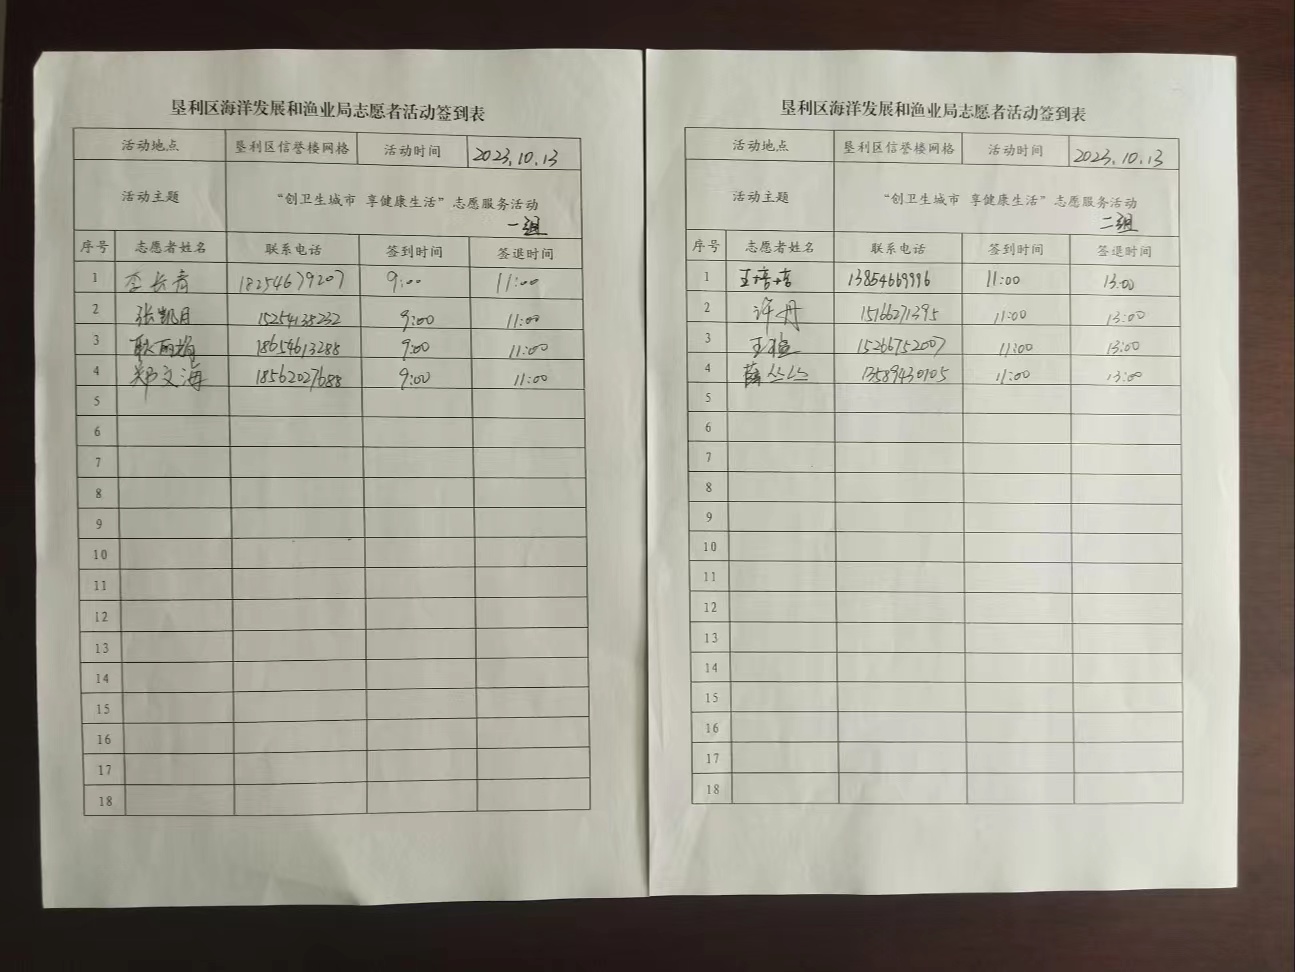 垦利区海洋发展和渔业局志愿者活动签到表
活动地点 垦利区信誉楼网格 活动时间 2023.10.13
活动主题 “创卫生城市 享健康生活”志愿服务活动
一组
序号 志愿者姓名 联系电话 签到时间 签退时间
1 李长青 18254679207 9:00 11:00
2 张凯月 15254135232 9:00 11:00
3 耿丽娟 18654613288 9:00 11:00
4 郑文海 18562027688 9:00 11:00
5
6
7
8
9
10
11
12
13
14
15
16
17
18
垦利区海洋发展和渔业局志愿者活动签到表
活动地点 垦利区信誉楼网格 活动时间 2023.10.13
活动主题 “创卫生城市 享健康生活”志愿服务活动
二组
序号 志愿者姓名 联系电话 签到时间 签退时间
1 王培培 13854669996 11:00 13:00
2 许丹 15166271395 11:00 13:00
3 王 15266752007 11:00 13:00
4 薛丛丛 13589430105 11:00 13:00
5
6
7
8
9
10
11
12
13
14
15
16
17
18